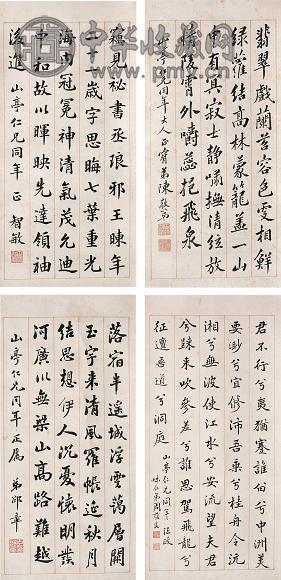 翡翠戲蘭苕容色更相鮮
綠蘿結高林蒙籠蓋一山
中有冥寂士靜嘯撫清絃放
情陵霄外嚼蕊挹飛泉
山亭仁兄同年大人正 弟陳敬第
竊見秘書丞琅邪王暕年
一歲字思晦七葉重光
海內冠冕神清氣茂允迪
中和故以暉映先達領袖
後進 山亭仁兄同年正 智敏
君不行兮夷猶蹇誰留兮中洲美
要渺兮宜修沛吾乘兮桂舟令沅
湘兮無波使江水兮安流望夫君
兮未來吹參差兮誰思駕飛龍兮北
征邅吾道兮洞庭
山亭仁兄同年法政
落宿半遙城浮雲藹層闕
玉宇來清風羅帳延秋月
結思想伊人沉憂懷明發
河廣川無梁山高路難越
山亭仁兄同年正屬 弟邵章